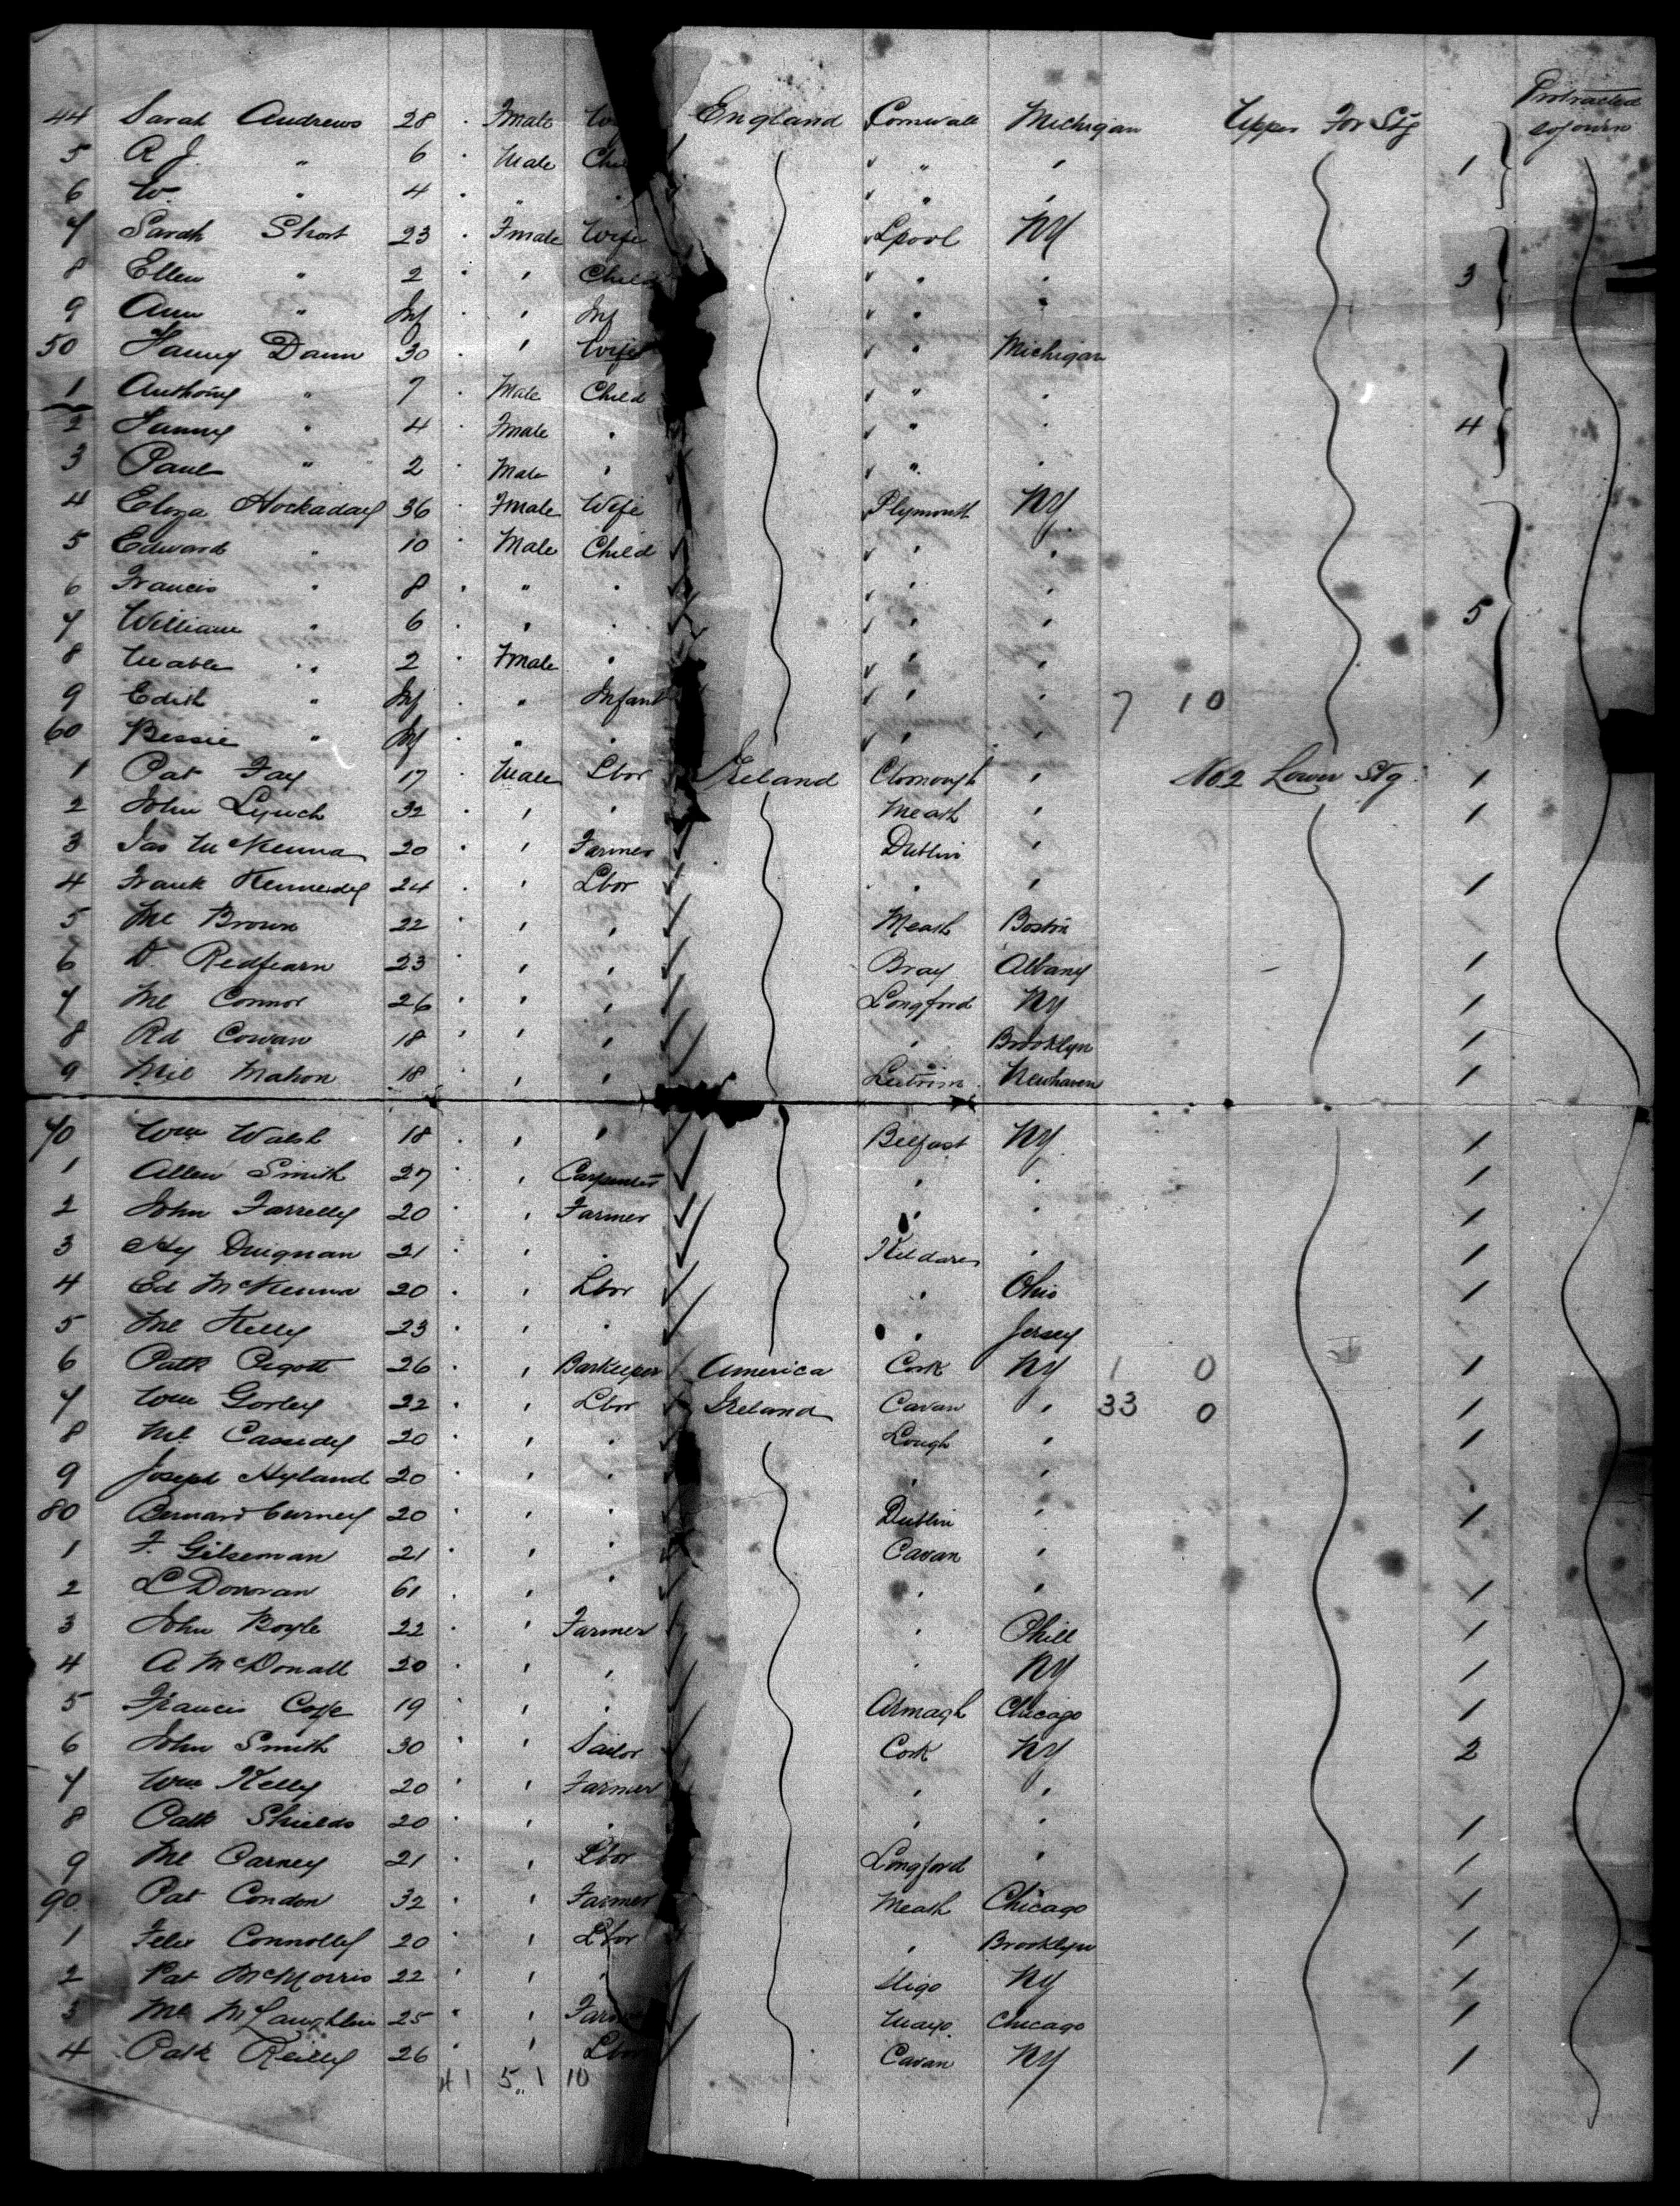 Protracted
44 Sarah Andrews 28 · Fmale England Cornwall Michigan Upper For Stg sojourn
5 R J. " 6 · Male " ' 1
6 W. " 4 · " " '
7 Sarah Short 23 · Fmale Wife Lpool NY
8 Ellen " 2 · ' Child " ' 3
9 Ann " Inf · ' Inf " '
50 Fanny Dann 30 · ' Wife " Michigan
1 Anthony " 7 · Male Child " '
2 Fanny " 4 · Fmale ' " ' 4
3 Paul " 2 · Male ' " '
4 Eliza Hockaday 36 · Fmale Wife Plymouth NY
5 Edward " 10 · Male Child ' '
6 Francis " 8 · " ' ' '
7 William " 6 · " ' ' ' 5
8 Mable " 2 · Fmale ' ' '
9 Edith " Inf · " Infant ' ' 7 10
60 Bessie " Inf · " ' ' '
1 Pat Fay 17 · Male Lbor Ireland ' No 2 Lower Stg. 1
2 John Lynch 32 · ' ' Meath ' 1
3 Jas McKenna 20 · ' Farmer Dublin '
4 Frank Kennedy 24 · ' Lbor ' ' 1
5 Ml Brown 22 · ' ' Meath Boston
6 Redfearn 23 · ' ' Bray Albany 1
7 Ml Connor 26 · ' ' Longford NY 1
8 Rd Cowan 18 · ' ' ' Brooklyn 1
9 Mahon 18 · ' ' Leitrim Newhaven 1
70 Wm Walsh 18 · ' ' Belfast NY 1
1 Allen Smith 27 · ' Carpenter ' ' 1
2 John Farrelly 20 · ' Farmer ' ' 1
3 Hy Duignan 21 · ' ' Kildare ' 1
4 Ed McKenna 20 · ' Lbor ' Ohio 1
5 Ml Kelly 23 · ' ' ' Jersey
6 Patk Pigott 26 · ' Barkeeper America Cork NY 1 0 1
7 Wm Gorley 22 · ' Lbor Ireland Cavan ' 33 0 1
8 Ml Cassidy 20 · ' ' Lough ' 1
9 Joseph Hyland 20 · ' ' ' '
80 Bernard 20 · ' ' Dublin ' 1
1 F. Gilseman 21 · ' ' Cavan '
2 L Donovan 61 · ' ' ' ' 1
3 John Boyle 22 · ' Farmer ' Phill 1
4 A McDonall 20 · ' ' ' NY 1
5 Francis 19 · ' ' Armagh Chicago 1
6 John Smith 30 · ' Sailor Cork NY 2
7 Wm Kelly 20 · ' Farmer ' '
8 Patk Shields 20 · ' ' ' ' 1
9 Ml Carney 21 · ' Lbor Longford ' 1
90 Pat Condon 32 · ' Farmer Meath Chicago 1
1 Felix Connolly 20 · ' Lbor ' Brooklyn 1
2 Pat McMorris 22 · ' ' Sligo NY 1
3 Ml McLaughlin 25 · ' Mayo Chicago 1
4 Patk Reilly 26 · ' Cavan NY 1
41 5 " 1 10